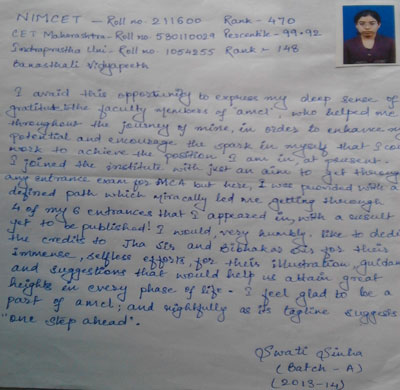 NIMCET - Roll no. 211600 Rank - 470
CET Maharashtra - Roll no. 580110029 Percentile - 99.92
Indraprastha Uni - Roll no. 1054255 Rank - 148
Banasthali Vidyapeeth
I avaid this opportunity to express my deep sense of
gratitude the faculty members of 'amcl', who helped me
throughout the journey of mine, in order to enhance my
potential and encourage the spark in myself that I cou
work to achieve the position I am in, at present.
I joined the institute with just an aim to get through
any entrance exam for MCA but here, I was provided with a
defined path which miracally led me getting through
4 of my 6 entrances that I appeared in, with a result
yet to be published! I would, very humbly, like to dedi
the credits to Jha Sir and Bibhakar Sir for their
immense, selfless efforts, for their illustration, guidan
and suggestions that would help us attain great
heights in every phase of life. I feel glad to be a
part of amcl; and rightfully as its tagline suggests
"one step ahead".
Swati Sinha
(Batch - A)
(2013-14)